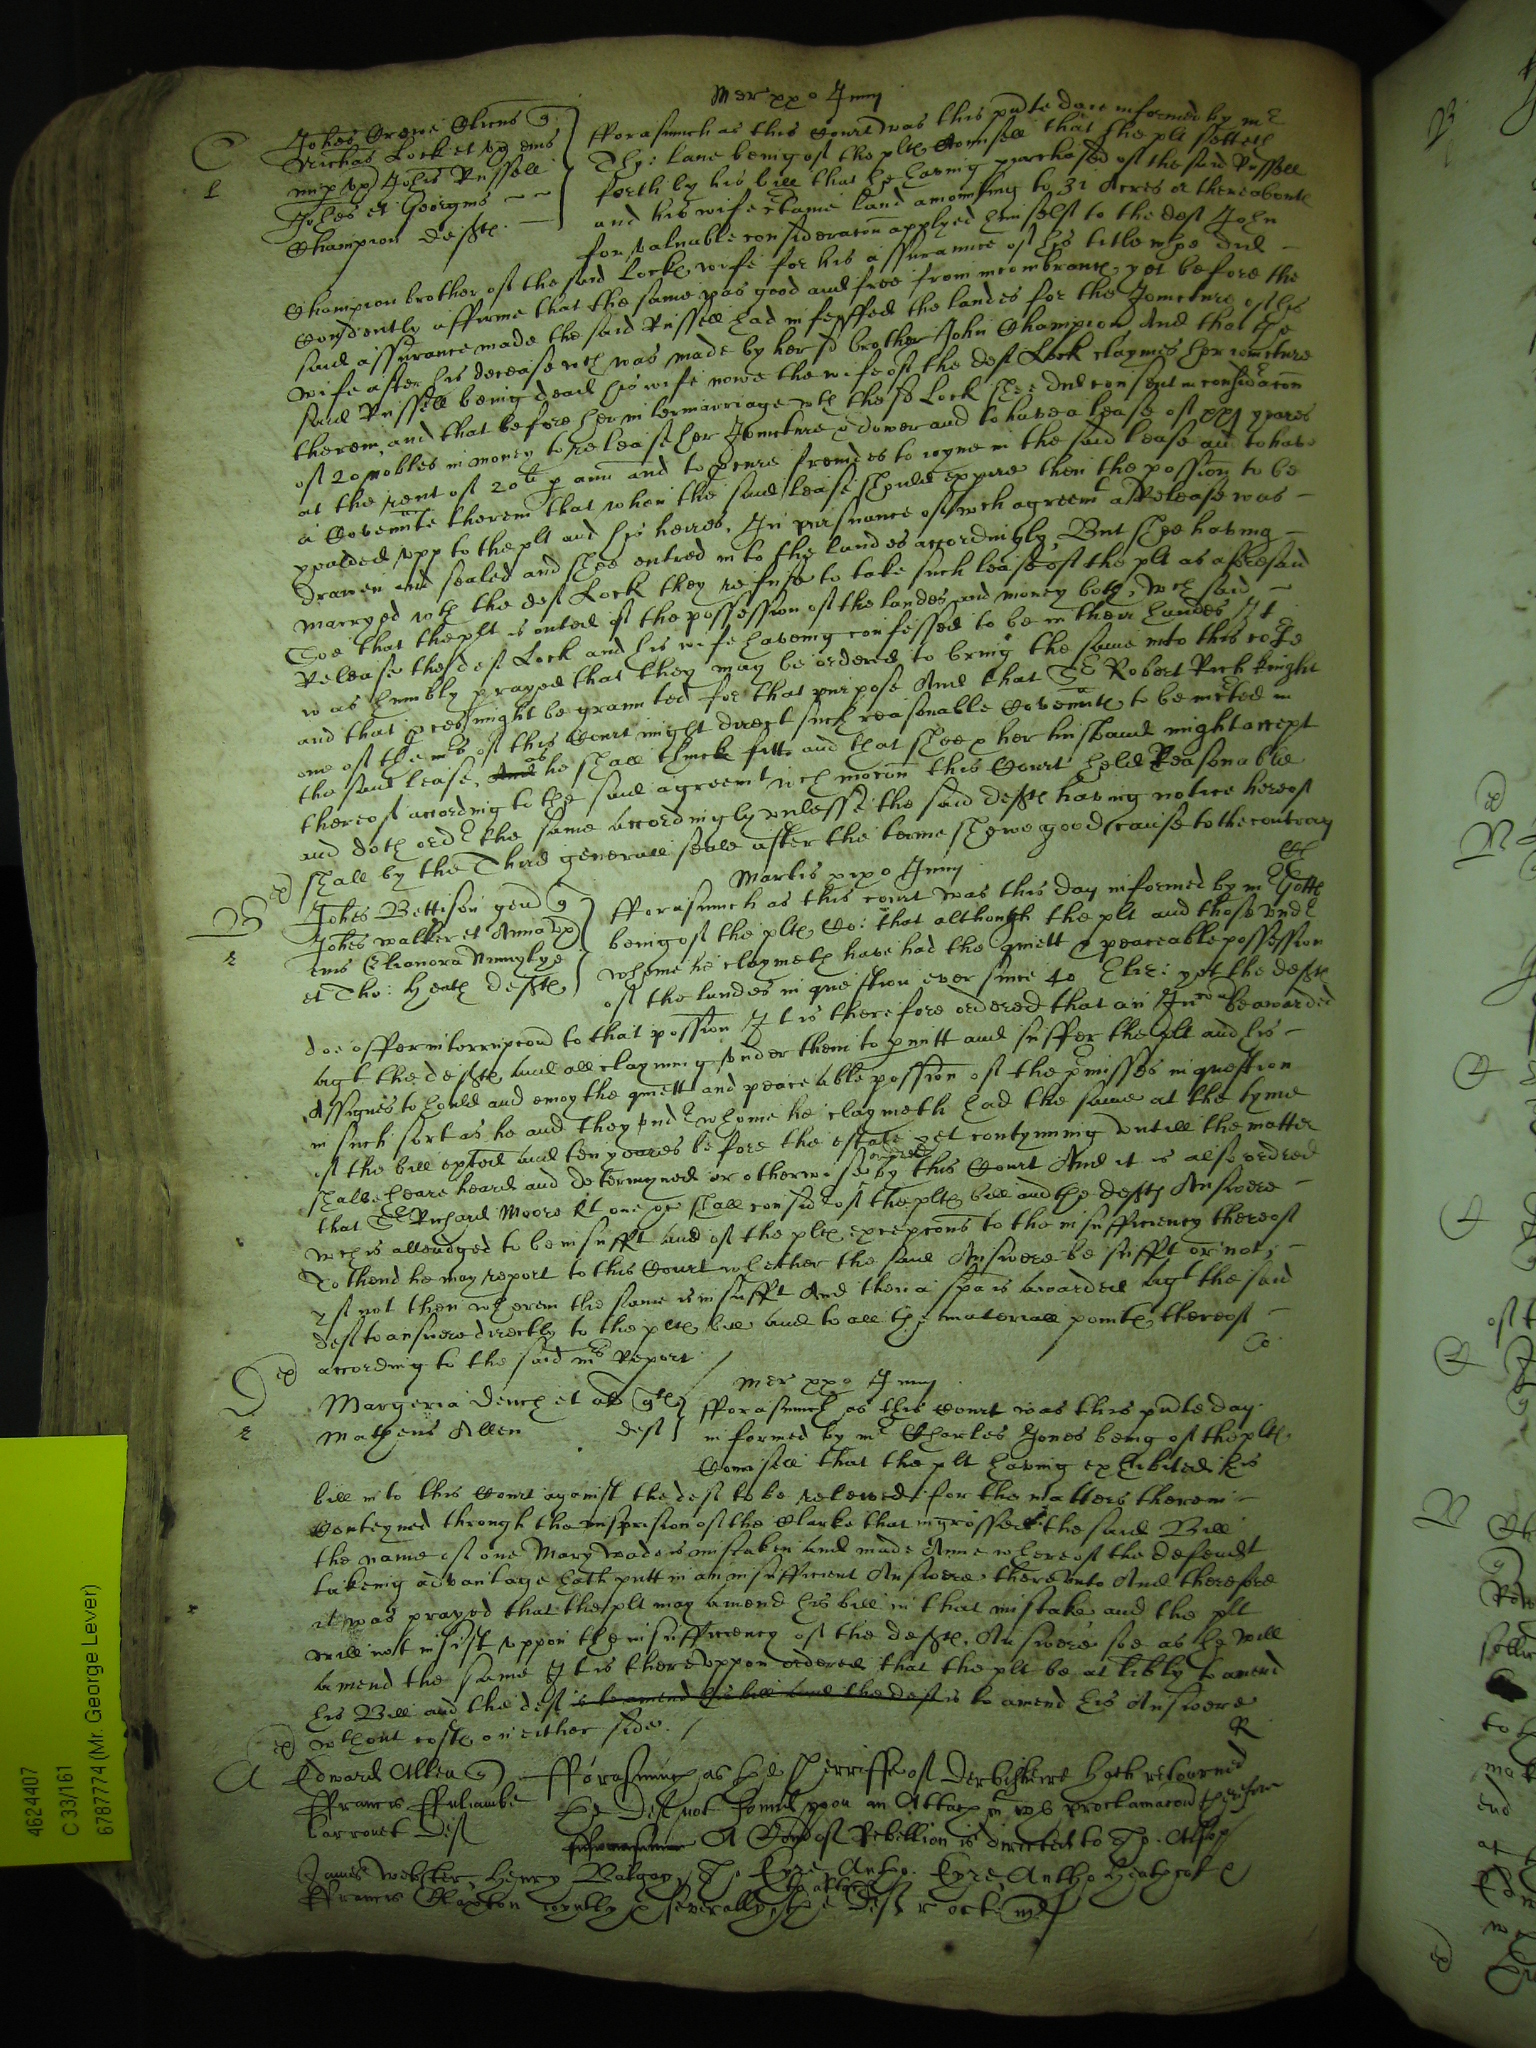 Mer xxo Junij
C
Johes Crowe Cliens q
Nichas Lock et ux eius
nup ux Johis Russell
Johes et Georgius
Champion defts
Fforasmuch as this Court was this pnte daie informed by mr
Tho: Lane being of the plts Counsell that the plt setteth
forth by his bill that he having purchased of the said Russell
and his wife certaine land amounting to 31 Acres or thereabouts
for valuable consideracon applyed himselfe to the deft John
Champion brother of the said Locks wife for his assurance of his title whoe did
Confidently affirme that the same was good and free from incombrance, yet before the
said assurance made the said Russell had infeoffed the landes for the Jointure of his
wife after his decease wch was made by her sd brother John Champion And that the
said Russell being dead his wife nowe the wife of the deft Lock claymes her iointure
therein, and that before her intermarriage wth the sd Lock shee did consent in considracon
of 20 nobles in money to release her Jointure & dower and to have a lease of xxj yeares
at the rent of 20li p ann and to pcure freindes to ioyne in the said lease and to have
a Covennte therein that when the said lease should expire then the possion to be
yealded upp to the plt and his heires. In pursuance of wch agreemt a Release was
drawen and sealed and shee entred into the landes accordingly, But shee having
marryed wth the deft Lock they refuse to take such lease of the plt as aforesaid
Soe that the plt is outed of the possession of the landes and money both, Wch said
Release the deft Lock and his wife haveing confessed to be in their handes It
was humbly prayed that they may be ordered to bring the same into this Corte
and that pces might be graunted for that purpose And that Sr Robert Rich knight
one of the mrs of this Court might direct such reasonable Covennts to be incted in
the said lease, as he shall thinck fitt and that shee & her husband might accept
thereof according to the said agreemt wch mocon this Court held Reasonable
and doth ordr the same accordingly unlesse the said defts having notice hereof
shall by the Third generall seale after the terme shewe good cause to the contrary
Martis xixo Junij
B
Johes Bettison gen q
Johes walker et Anna ux
eius Elianora
et Tho: Heath defts
Fforasmuch as this court was this day informed by mr
being of the plts Co: that although the plt and those undr
whome he claymeth have had the quiett & peaceable possession
of the landes in question ever since 40 Eliz: yet the defts
doe offer interrupcon to that possion It is therefore ordered that an Incon be awarded
agt the defts and all clayming under them to pmitt and suffer the plt and his
Assignes to hould and enioy the quiett and peaceable possion of the pmisses in question
in such sort as he and they undr whome he claymeth had the same at the tyme
of the bill exted and ten yeares before the estate yet contynuing untill the matter
shalbe heare heard and determyned or otherwise ordered by this Court And it is alsoe ordred
that Sr Richard Moore kt one &c shall considr of the plts bill and the defts Answere
wch is alleadged to be insufft and of the plts excepcons to the insufficiency thereof
To thend he may report to this Court whether the said Answere be sufft or not,
yf not then wherein the same is insufft And then a spa is awarded agt the said
deft to answere directly to the plts bill and to all the materiall points thereof
according to the said mrs Report
Co
D
Mer xxo Junij
Margeria Dench et al q
Matheus Allen deft
Fforasmuch as this Court was this pnte day
informed by mr Charles Jones being of the plts
Counsell that the plt having exhibited his
bill into this Court against the deft to be releived for the matters therein
Conteyned through the misprision of the Clarke that ingrossed the said Bill
the name of one Mary wade is mistaken and made Anne whereof the defendt
takeing advantage hath putt in an insufficient Answere thereunto And therefore
it was prayed that the plt may amend his bill in that mistake and the plt
will not insist uppon the insufficiency of the defts Answere soe as he will
amend the same It is thereuppon ordered that the plt be at libty to amend
his Bill and the deft is to amend his bill and the deft is to amend his Answere
wthout costs on either side.
R
A
Edward Allen q
Ffrancis Ffuliambe
barronet Deft
Fforasmuch as the Sherriffe of Derbishire hath retourned
the Deft not found upon an Attachmt wth proclamacon therefore
A Comon of Rebellion is directed to Tho: Alsop
James Webster, Henry Balgay, Tho Eyre Antho. Eyre, Antho Heathcote
Ffrancis Claxton ioyntly & severally to attach the Deft r oct mich
4624407
C 33/161
6787774 (Mr. George Lever)